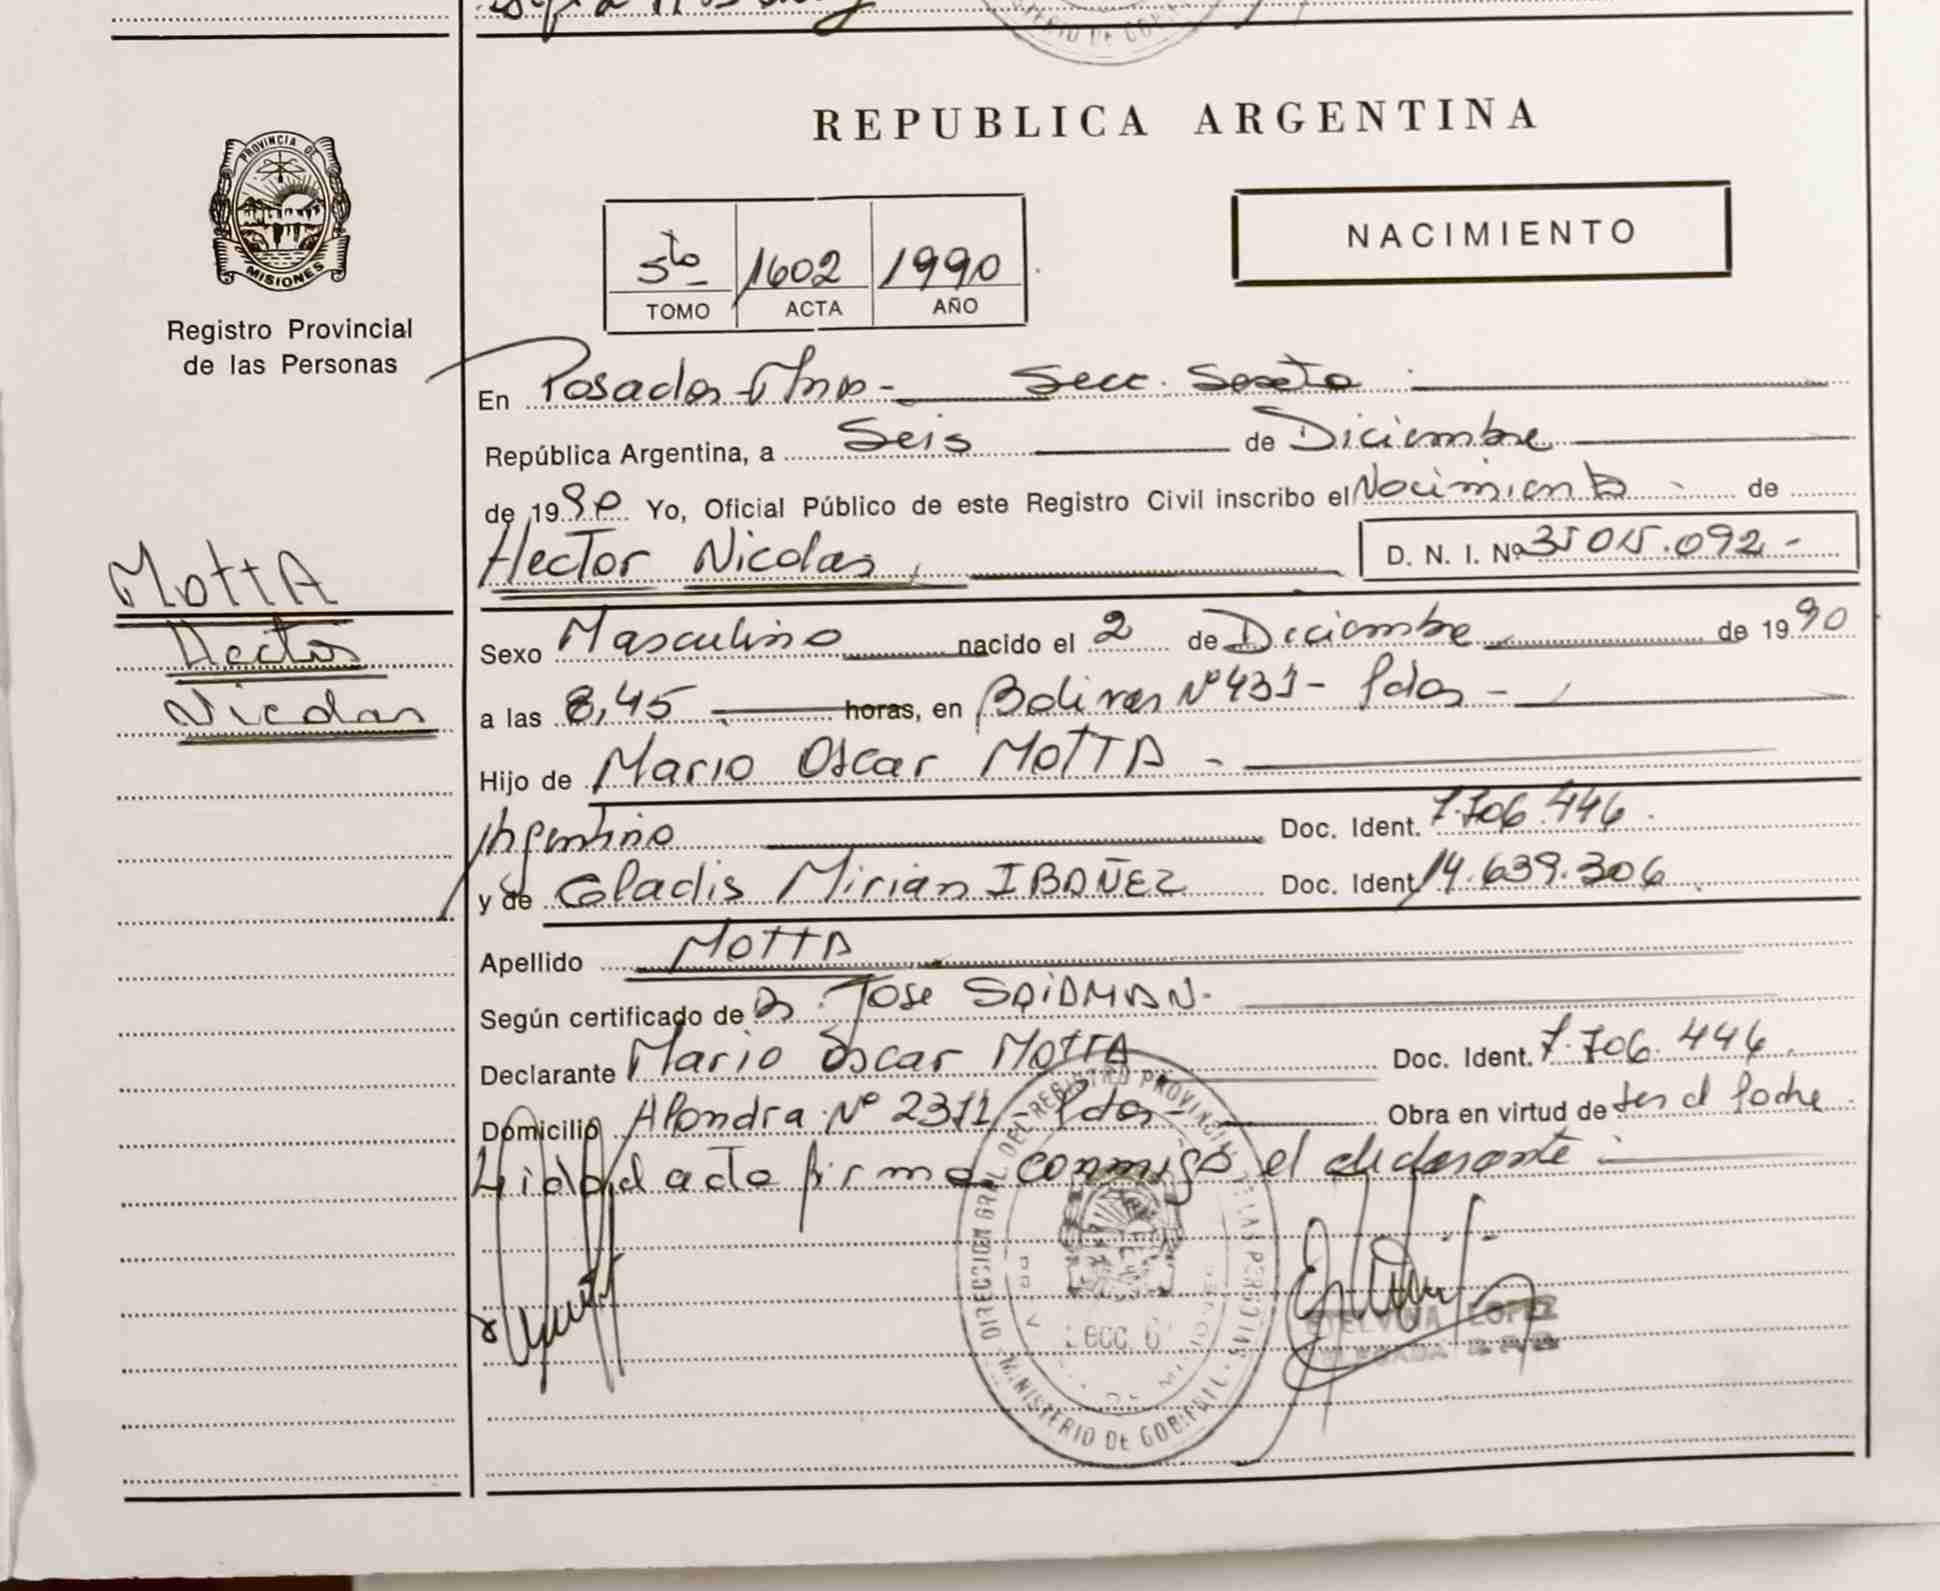 PROVINCIA DE
MISIONES
Registro Provincial
de las Personas
REPUBLICA ARGENTINA
NACIMIENTO
5to 1602 1990
TOMO ACTA AÑO
En Posadas Mnes - Secc. Sexta
República Argentina, a Seis de Diciembre
de 1990 Yo, Oficial Público de este Registro Civil inscribo el Nacimiento de
Hector Nicolas, D. N. I. Nº 35015.092 -
MOTTA
Hector
Nicolas
Sexo Masculino nacido el 2 de Diciembre de 1990
a las 8,45 horas, en Bolivar Nº 431 - Pdas -
Hijo de Mario Oscar MOTTA -
Argentino Doc. Ident. 7.706.446.
y de Gladis Mirian IBAÑEZ Doc. Ident. 14.639.306
Apellido MOTTA
Según certificado de Dr. Jose SAIDMAN.
Declarante Mario Oscar MOTTA Doc. Ident. 7.706.446.
Domicilio Alondra Nº 2311 - Pdas - Obra en virtud de ser el padre
Leida el acta firma conmigo el declarante
DIRECCION GRAL. DEL REGISTRO PROVINCIAL DE LAS PERSONAS
MINISTERIO DE GOBIERNO
SECC. 6
LOPEZ